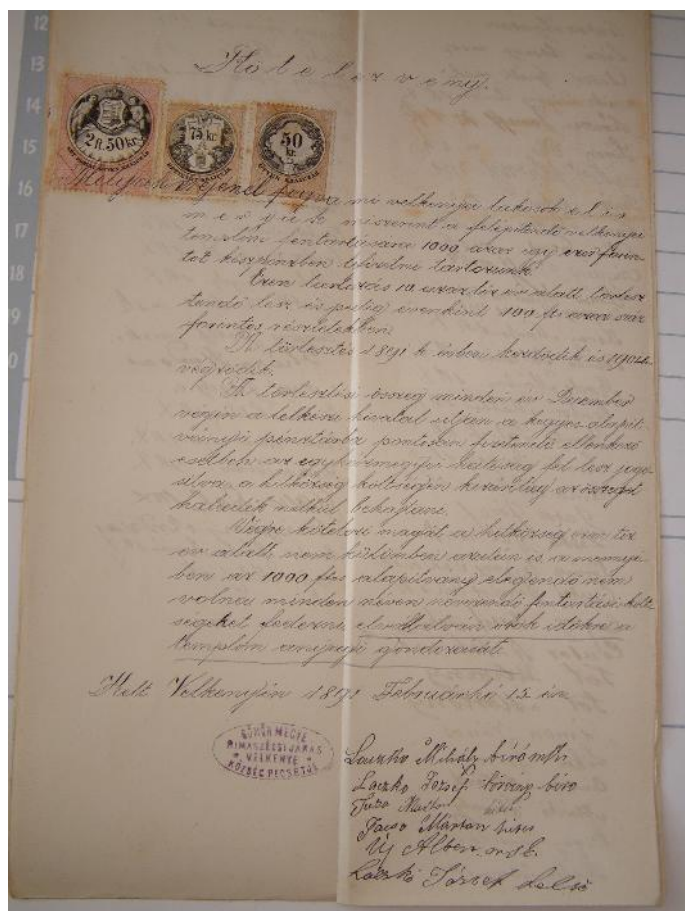 12
13
14
15
16
17
18
19
Kötelezvény.
2 ft. 50 kr.
75 kr.
50 kr.
ÖTVEN KRAJCZÁR
Melynek erejénél fogva mi velkenyei lakosok elis
merjük miszerint a felépítendő velkenyei
templom fentartására 1000 azaz egy ezer forin-
tot készpénzben lefizetni tartozunk.
Ezen tartozás 10 azaz tíz év alatt törlesz
tendő lesz és pedig évenkint 100 ft azaz száz
forintos részletekben.
A törlesztés 1891 k évben kezdődik és 1901
végződik.
A törlesztési összeg minden év December
végén a lelkészi hivatal utján a kegyes alapit-
ványi pénztárba pontosan fizetendő ellenkező
esetben az egyházmegyei hatóság fel lesz jogo-
sitva a hitközség költségén az összeget
haladék nélkül behajtani.
Végre kötelezi magát a hitközség ezen tíz
év alatt, nem különben azután is a mennyi-
ben az 1000 ftos alapítvány elegendő nem
volna minden néven nevezendő fentartási költ
ségeket fedezni, örök időkre a
templom anyagi gondozását.
Kelt Velkenyén 1891 Februárhó 15 én
GÖMÖR MEGYE
RIMASZÉCSI JÁRÁS
VELKENYE
KÖZSÉG PECSÉTJE
Laczko Mihály biró
Laczko József törvény biro
Márton hites
Uj Albert
Laczkó József belső